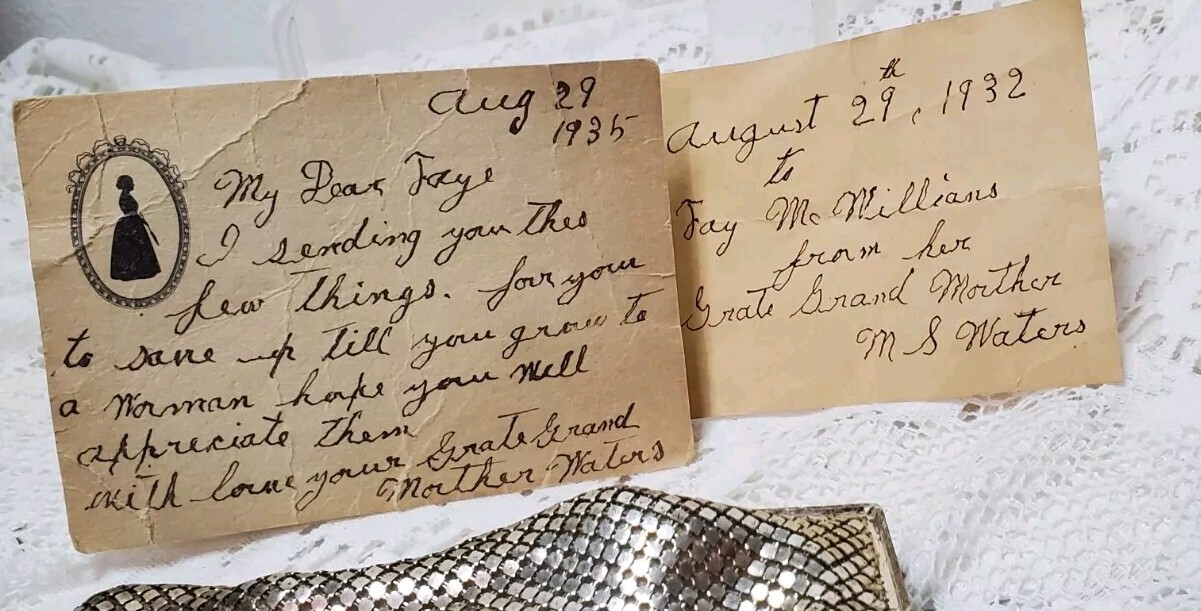 Aug 29
1935
My Dear Faye
I sending you thes
few things. for you
to save up till you grow to
a Worman hope you Will
appreciate them
with love your Grate Grand
Morther Waters
August 29th, 1932
to
Fay Mc Willians
from her
Grate Grand Morther
M S Waters